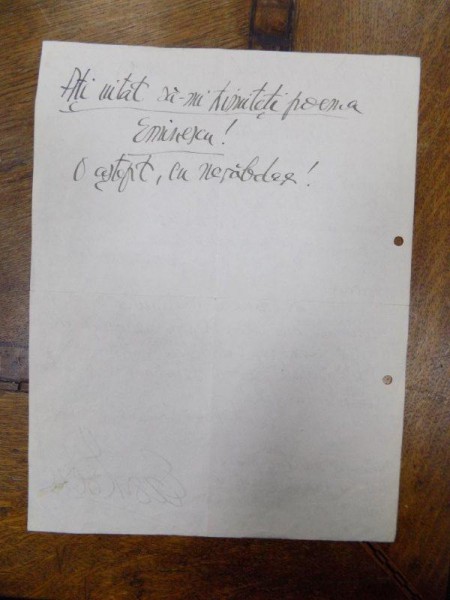 Ați uitat să-mi trimiteți poema
Eminescu!
O aștept, cu nerăbdare!